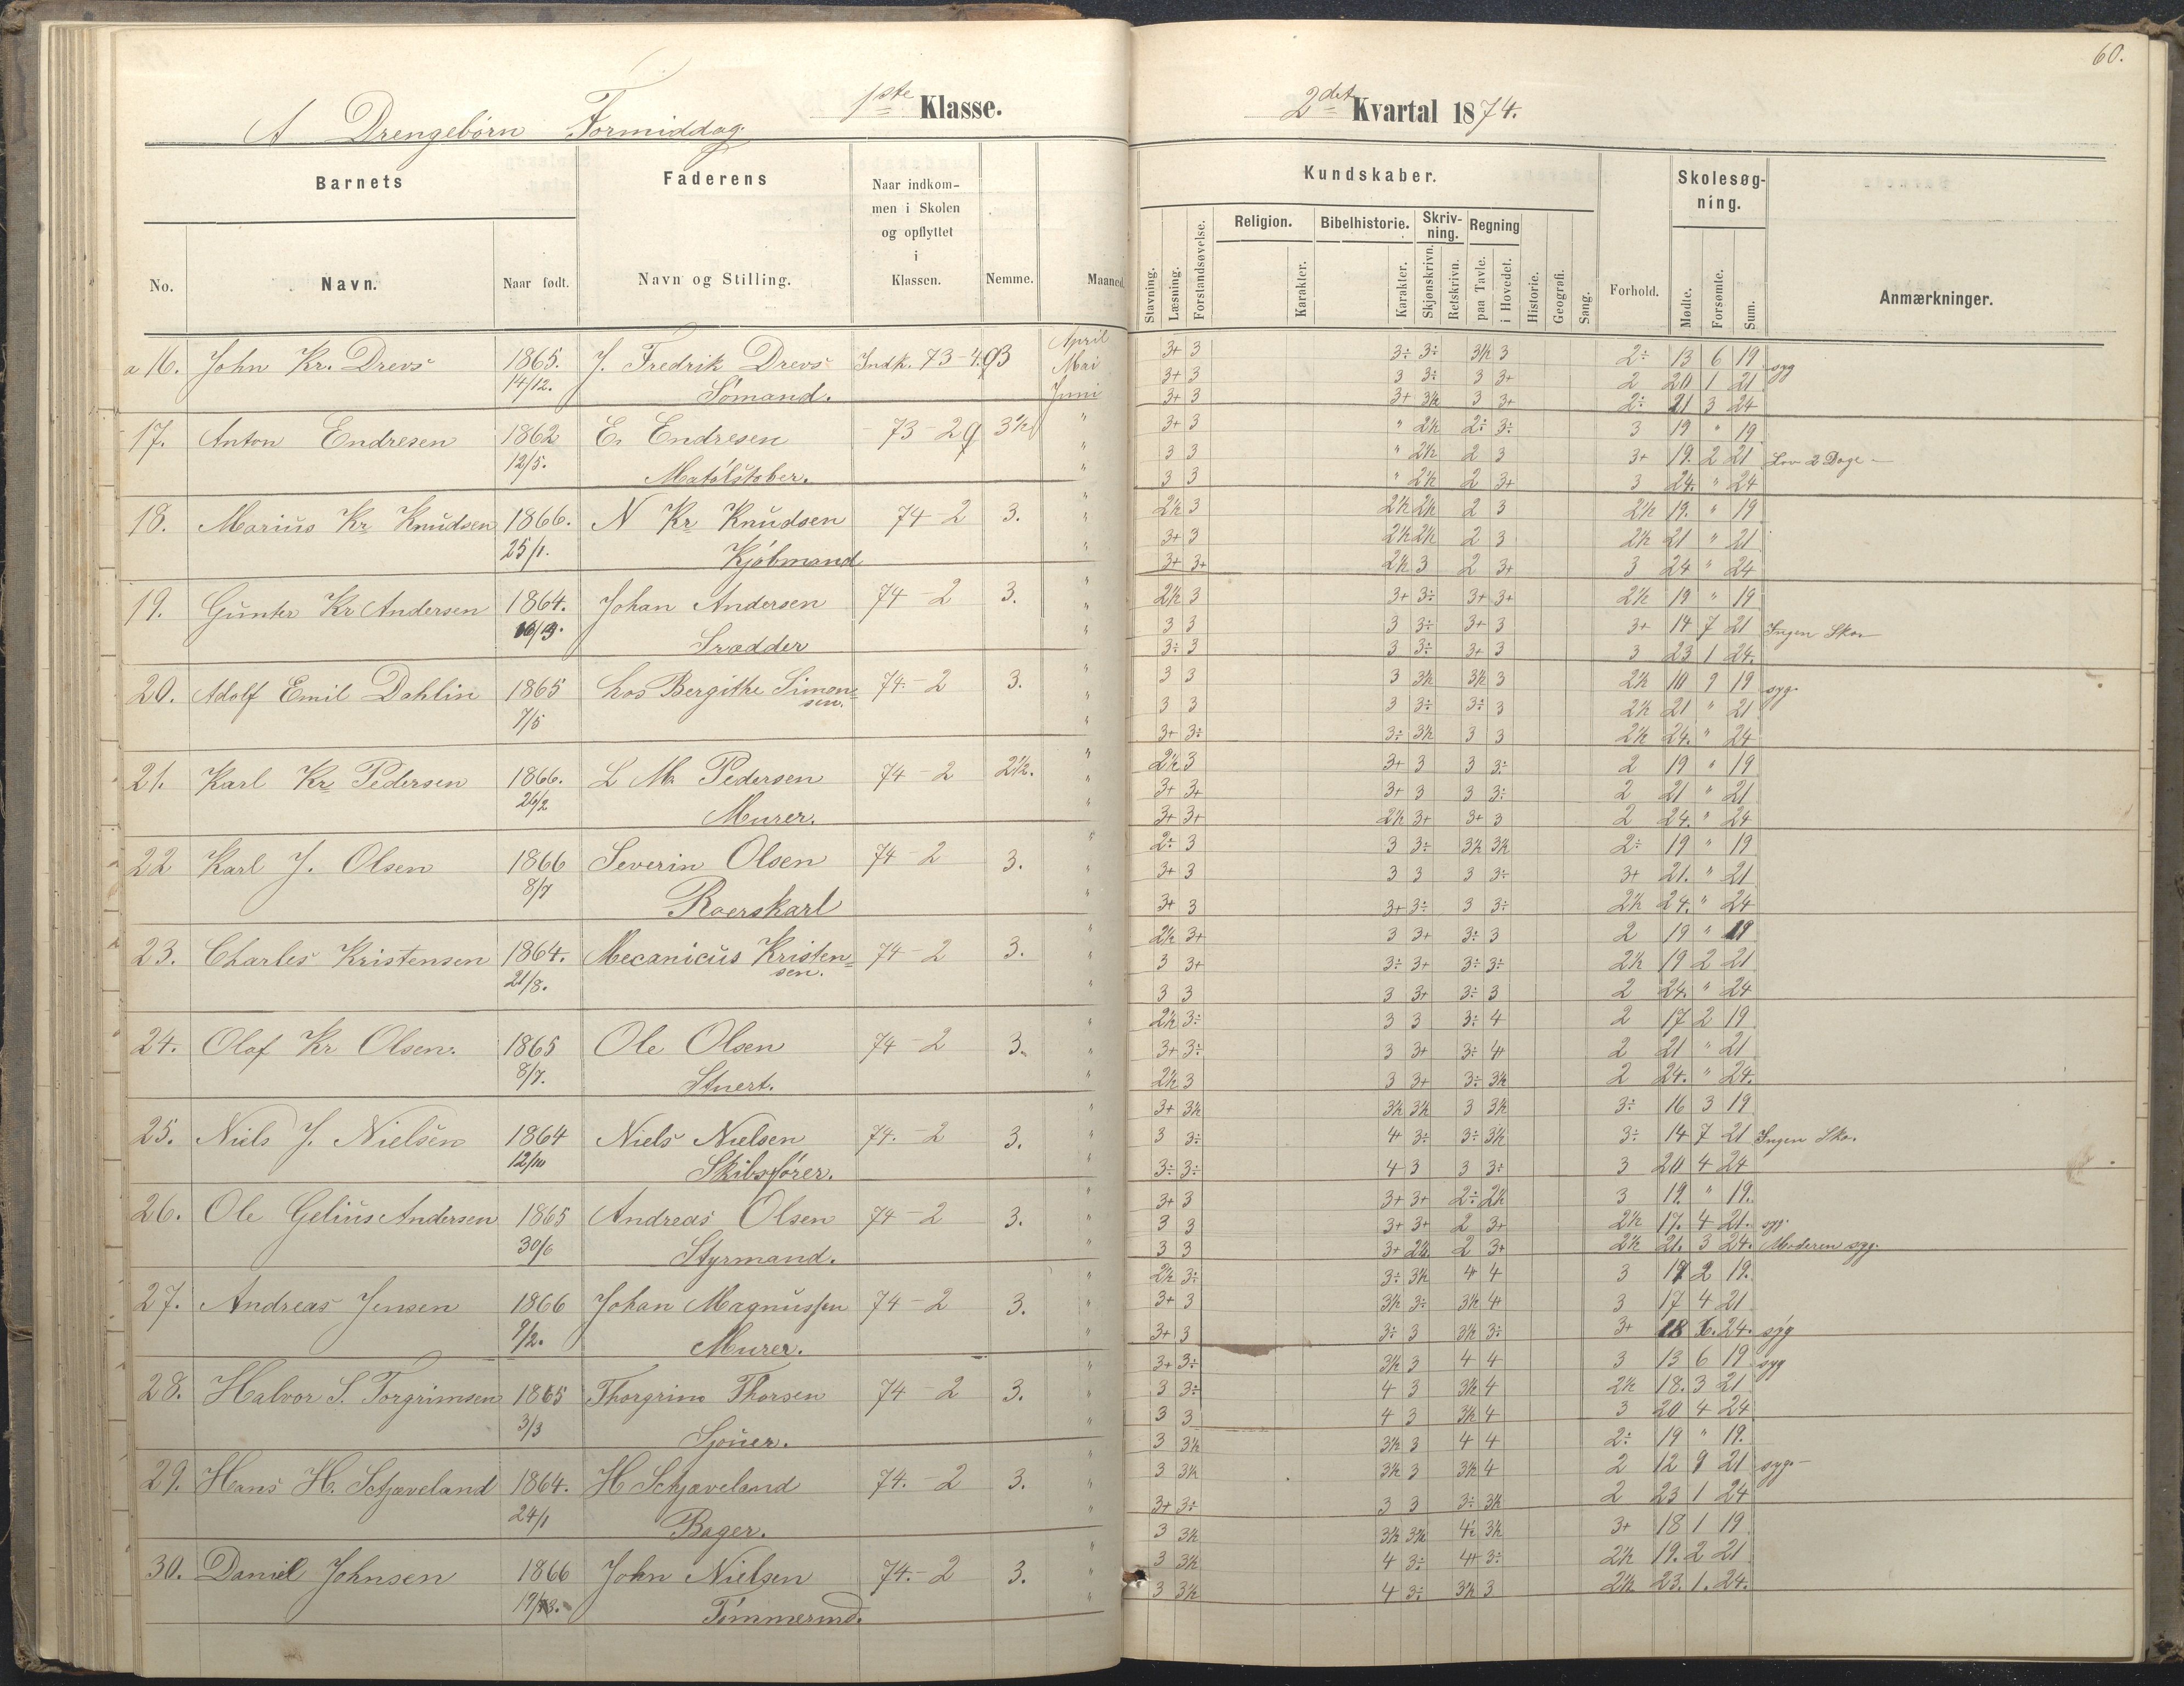 60.
A Drengebörn Formiddag. 1ste Klasse.
2det Kvartal 1874.
Barnets
Faderens
Naar indkom-
men i Skolen
og opflyttet
i
Klassen.
No.
Navn.
Naar født.
Navn og Stilling.
Nemme.
Maaned.
Kundskaber.
Skolesøg-
ning.
Religion.
Bibelhistorie.
Skriv-
ning.
Regning
Stavning.
Læsning.
Forstandsøvelse.
Karakter.
Karakter.
Skjønskrivn.
Retskrivn.
paa Tavle.
i Hovedet.
Historie.
Geografi.
Sang.
Forhold.
Mødte.
Forsømte.
Sum.
Anmærkninger.
a 16. John Kr. Drevs 1865. J. Fredrik Drevs Indk. 73-4. 3
14/12. Sömand.
April 3+ 3 3÷ 3÷ 3½ 3 2÷ 13 6 19 syg
Mai 3+ 3 3 3÷ 3 3+ 2 20 1 21
Juni 3+ 3 3+ 3½ 3 3+ 2÷ 21 3 24
17. Anton Endresen 1862 E. Endresen 73-2 3½
12/5.
" 3+ 3 " 2½ 2÷ 3÷ 3 19 " 19
" 3 3 " 2½ 2 3 3+ 19. 2 21 Lov 2 Dage -
" 3 3 " 2½ 2 3+ 3 24. " 24
18. Marius Kr Knudsen 1866. N Kr Knudsen 74-2 3.
25/1. Kjöbmand
" 2½ 3 2½ 2½ 2 3 2½ 19. " 19
" 3+ 3 2½ 2½ 2 3 2½ 21 " 21
" 3+ 3+ 2½ 3 2 3+ 3 24 " 24
19. Gunter Kr Andersen 1864. Johan Andersen 74-2 3.
Srædder
" 2½ 3 3+ 3÷ 3+ 3+ 2½ 19 " 19
" 3 3 3 3÷ 3+ 3 3+ 14 7 21 Ingen Sko
" 3÷ 3 3 3÷ 3+ 3 3 23 1 24.
20. Adolf Emil Dahlin 1865 hos Bergithe Simon=
sen. 74.-2 3.
7/5
" 3 3 3 3½ 3½ 3 2½ 10 9 19 syg.
" 3 3 3 3÷ 3÷ 3 2½ 21 " 21
" 3+ 3÷ 3÷ 3½ 3 3 2½ 24. " 24
21. Karl Kr Pedersen 1866. L M. Pedersen 74-2 2½.
26/2 Murer.
" 2½ 3 3+ 3 3 3÷ 2 19 " 19
" 3+ 3+ 3+ 3 3 3÷ 2 21 " 21
" 3+ 3+ 2½ 3+ 3+ 3 2 24. " 24
22 Karl J. Olsen 1866 Severin Olsen 74-2 3.
8/7 Roerskarl
" 2÷ 3 3 3÷ 3½ 3½ 2÷ 19 " 19
" 3+ 3 3 3 3 3÷ 3+ 21. " 21
" 3+ 3 3+ 3÷ 3 3÷ 2½ 24. " 24
23. Charles Kristensen 1864. Mecanicus Kristen=
sen. 74-2 3.
21/8.
" 2½ 3+ 3 3+ 3÷ 3 2 19 " 19
" 3 3+ 3÷ 3+ 3÷ 3÷ 2½ 19 2 21
" 3 3 3 3+ 3÷ 3 2 24. " 24
24. Olaf Kr Olsen. 1865 Ole Olsen 74-2 3.
8/7. Stuert.
" 2½ 3÷ 3 3 3÷ 4 2 17 2 19
" 3+ 3÷ 3 3+ 3÷ 4 2 21 " 21
" 2½ 3 3 3+ 3÷ 3½ 2 24. " 24.
25. Niels J. Nielsen 1864 Niels Nielsen 74.-2 3.
12/10 Skibsfører.
" 3+ 3½ 3½ 3½ 3 3½ 3÷ 16 3 19
" 3 3÷ 4 3÷ 3÷ 3½ 3÷ 14 7 21 Ingen Sko.
" 3÷ 3÷ 4 3 3 3÷ 3 20 4 24
26. Ole Gelius Andersen 1865 Andreas Olsen 74-2 3.
30/6 Styrmand.
" 3+ 3 3+ 3+ 2÷ 2½ 3 19. " 19.
" 3 3 3+ 3+ 2 3+ 2½ 17. 4 21. syg.
" 3 3 3+ 2½ 2 3+ 2½ 21. 3 24. Moderen syg.
27. Andreas Jensen 1866 Johan Magnussen 74-2 3.
9/2. Murer.
" 2½ 3÷ 3÷ 3½ 4 4 3 17 2 19.
" 3+ 3 3½ 3÷ 3½ 4 3 17 4 21
" 3+ 3 3÷ 3 3½ 3÷ 3+ 18 6. 24. syg
28. Halvor S. Torgrimsen 1865 Thorgrim Thorsen 74-2 3.
3/3 Sjouer.
" 3+ 3÷ 3½ 3 4 4 3 13 6 19 syg
" 3 3÷ 4 3 3½ 4 2½ 18. 3 21
" 3 3 4 3 3½ 4 3 20 4 24
29. Hans H. Schjaveland 1864. H Schjaveland 74.-2 3.
24/1 Bager.
" 3 3½ 3½ 3 4 4 2÷ 19 " 19.
" 3 3½ 3½ 3 3½ 4 2 12 9 21 syg. -
" 3+ 3÷ 3 3 3÷ 3½ 2 23 1 24
30. Daniel Johnsen 1866 John Nielsen 74.-2 3.
Tömmermd.
" 3 3½ 3½ 3½ 4÷ 3½ 3+ 18 1 19
" 3 3½ 4 3÷ 4+ 3÷ 2½ 19. 2 21
" 3 3½ 4 3÷ 3½ 3 2½ 23. 1. 24.